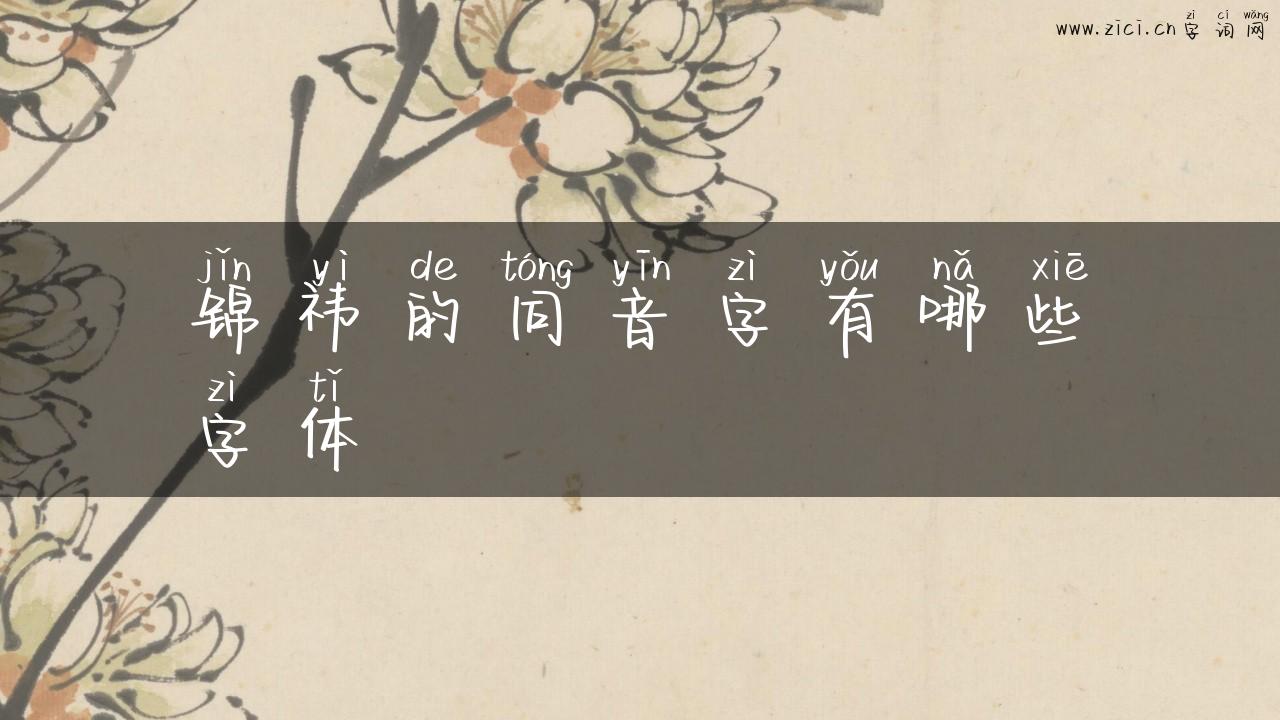 zì cí wǎng
www.zici.cn 字词网
jǐn yì de tóng yīn zì yǒu nǎ xiē
锦祎的同音字有哪些
zì tǐ
字体